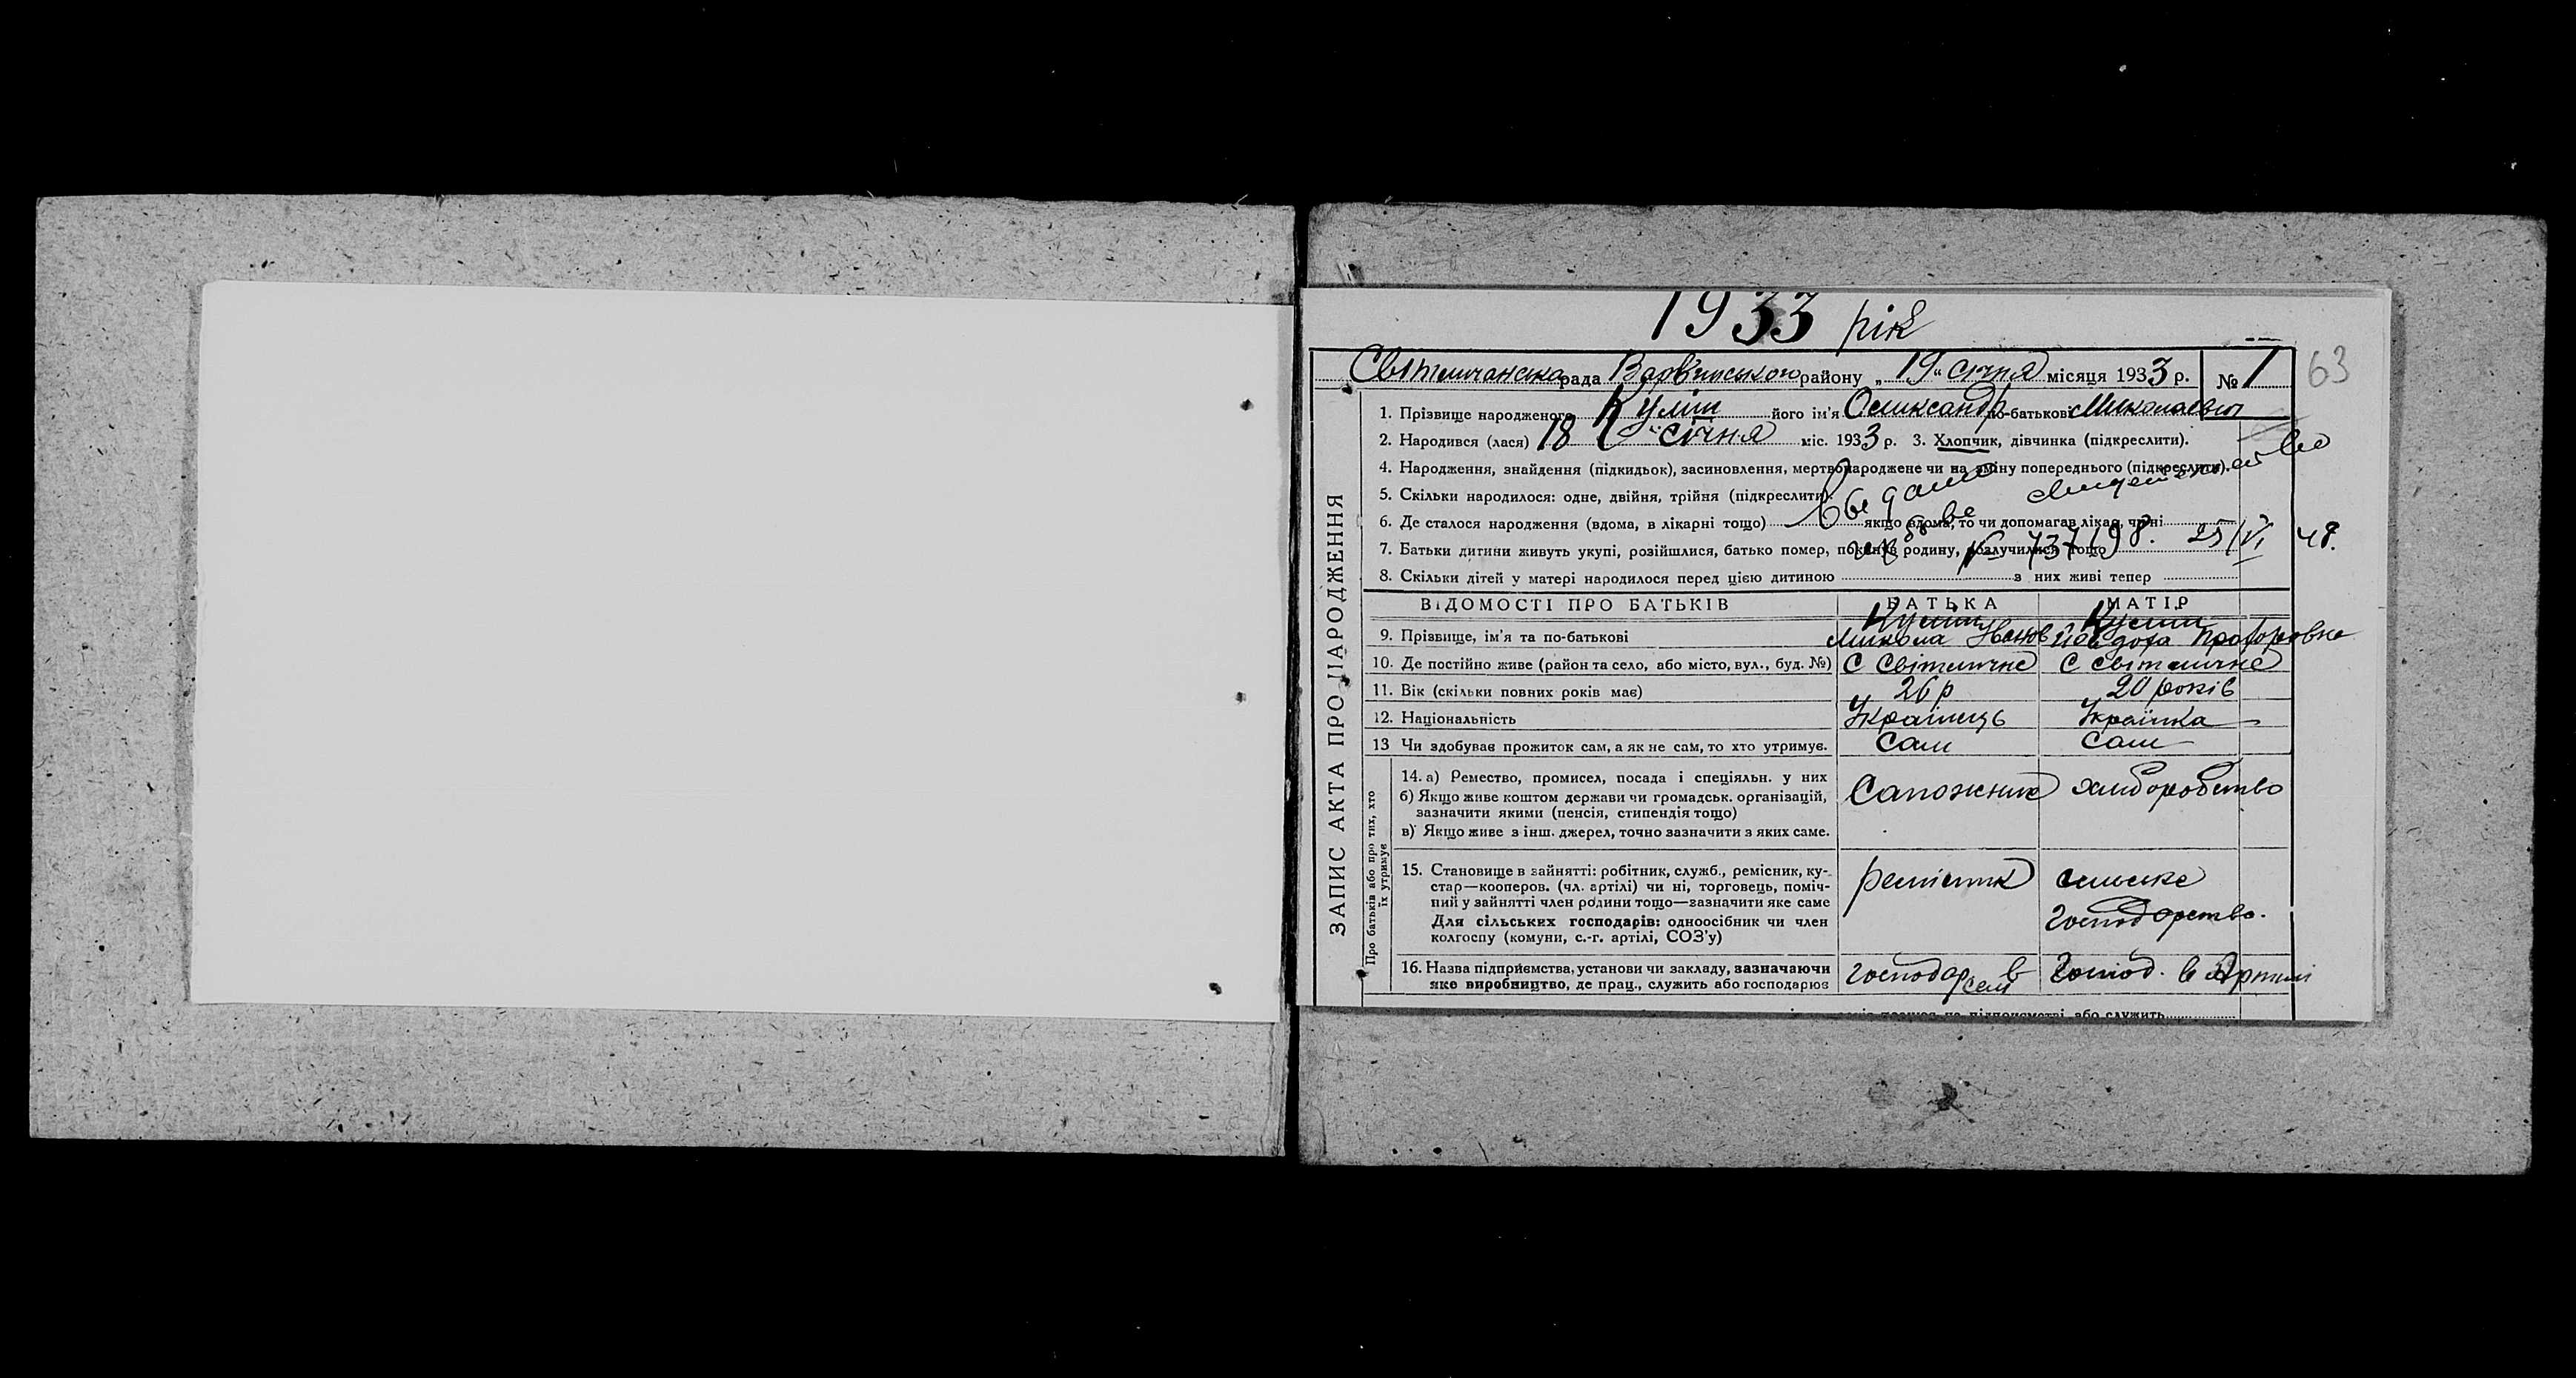 1933 рік
63
Світличанска рада Варвинського району „19“ січня місяця 1933 р. № 1
1. Прізвище народженого Куліш його ім'я Олександр по-батькові Миколаевич
2. Народився (лася) 18 „ січня міс. 1933 р. 3. Хлопчик, дівчинка (підкреслити).
4. Народження, знайдення (підкидьок), засиновлення, мертвонароджене чи на зміну попереднього (підкреслити).
5. Скільки народилося: одне, двійня, трійня (підкреслити).
6. Де сталося народження (вдома, в лікарні тощо) якщо вдома, то чи допомагав лікар, чи ні
7. Батьки дитини живуть укупі, розійшлися, батько помер, покинув родину, розлучилися тощо
25/VI 48.
8. Скільки дітей у матері народилося перед цією дитиною з них живі тепер
ЗАПИС АКТА ПРО НАРОДЖЕННЯ
ВІДОМОСТІ ПРО БАТЬКІВ БАТЬКА МАТІР
Куліш Куліш
9. Прізвище, ім'я та по-батькові Микола Іванов Йавдоха Прохоровна
10. Де постійно живе (район та село, або місто, вул., буд. №) С Світличне С Світличне
11. Вік (скільки повних років має) 26 р 20 років
12. Національність Українець Українка
13 Чи здобуває прожиток сам, а як не сам, то хто утримує. Сам Сам
Про батьків або про тих, хто їх утримує
14. а) Ремество, промисел, посада і спеціяльн. у них Сапожник хліборобство
б) Якщо живе коштом держави чи громадськ. організацій,
зазначити якими (пенсія, стипендія тощо)
в) Якщо живе з інш. джерел, точно зазначити з яких саме.
15. Становище в зайнятті: робітник, служб., ремісник, ку- реміник сильске
стар—кооперов. (чл. артілі) чи ні, торговець, поміч-
ний у зайнятті член родини тощо—зазначити яке саме господарство.
Для сільських господарів: одноосібник чи член
колгоспу (комуни, с.-г. артілі, СОЗ'у)
16. Назва підприємства, установи чи закладу, зазначаючи господар в Господ. в Артилі
яке виробництво, де прац., служить або господарює селі
працює на підприємстві або служить